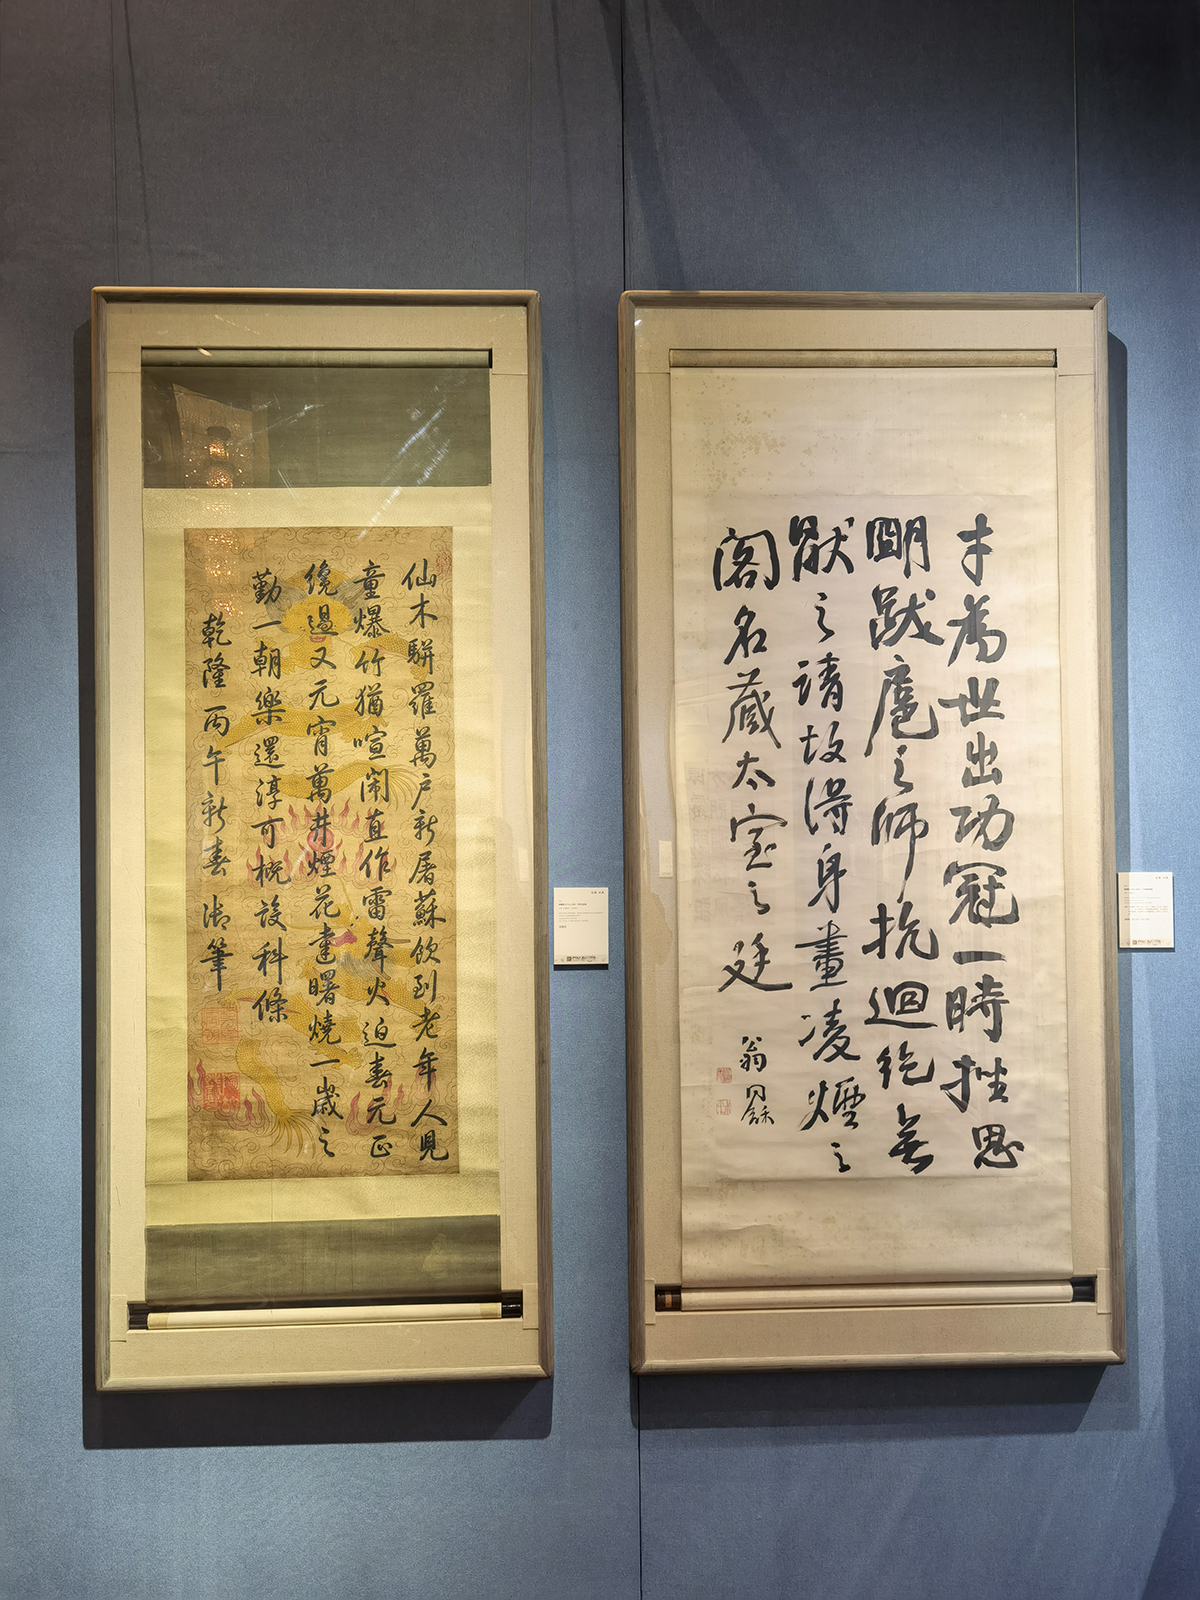 仙木駢羅萬户新屠蘇飲到老年人見
童爆竹猶喧鬧直作雷聲火迫春元正
纔過又元宵萬井煙花達曙燒一歲之
勤一朝樂還淳可概設科條
乾隆丙午新春御筆
才為世出功冠一時挫思
明跋扈之師抗迴紇無
猒之請故得身畫凌煙之
閣名藏太室之廷
翁同龢